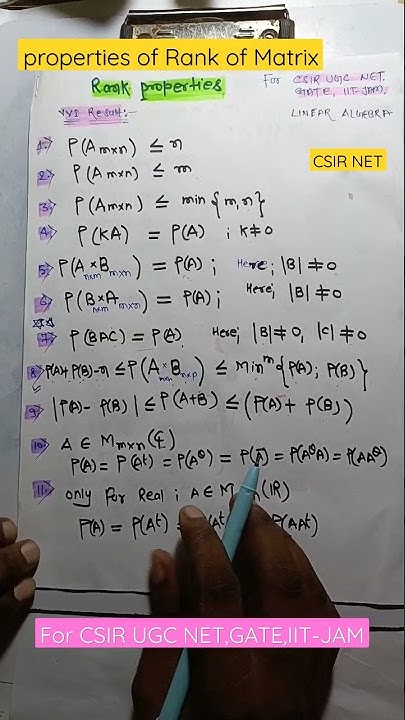 properties of Rank of Matrix
Rank properties
For CSIR UGC NET.
GATE, IIT-JAM.
LINEAR ALGEBRA
VVI Result:-
CSIR NET
1. ρ(Am×n) ≤ n
2. ρ(Am×n) ≤ m
3. ρ(Am×n) ≤ min {m,n}
4. ρ(KA) = ρ(A) ; K≠0
5. ρ(A×B) = ρ(A) ; Here; |B| ≠ 0
6. ρ(B×A) = ρ(A) ; Here; |B| ≠ 0
7. ρ(BAC) = ρ(A) Here; |B|≠0, |C|≠0
8. ρ(A)+ρ(B)-n ≤ ρ(A×B) ≤ Minm {ρ(A); ρ(B)}
9. |ρ(A)-ρ(B)| ≤ ρ(A+B) ≤ (ρ(A)+ρ(B))
10. A ∈ Mm×n(₵)
ρ(A) = ρ(At) = ρ(Aθ) = ρ(A) = ρ(AθA) = ρ(AAθ)
11. only for Real ; A ∈ M (IR)
ρ(A) = ρ(At) = ρ(AAt)
For CSIR UGC NET,GATE,IIT-JAM